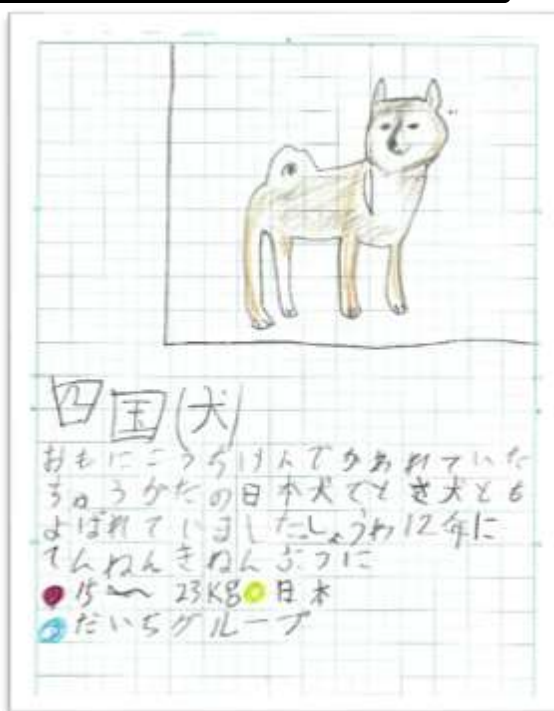 四国(犬)
おもにこうちけんでかわれていた
ちゅうがたの日本犬でとさ犬とも
よばれていました。しょうわ12年に
てんねんきねんぶつに
15〜23KG 日本
だいちグループ